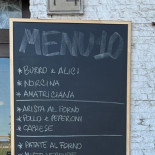 MENU 10
* BURRO & ALICI
* NORCINA
* AMATRICIANA
* ARISTA AL FORNO
* POLLO & PEPERONI
* CAPRESE
* PATATE AL FORNO